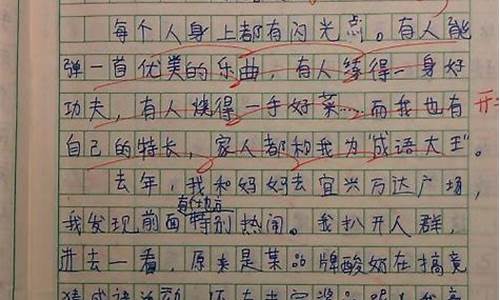 每个人身上都有闪光点。有人能
弹一首优美的乐曲，有人练得一身好
功夫，有人烧得一手好菜……而我也有
自己的特长，家人都称我为"成语大王"。
去年，我和妈妈去宜兴万达广场，
我发现前面有个地方特别热闹。我扒开人群，
进去一看，原来是某品牌酸奶在搞竞
猜成语活动